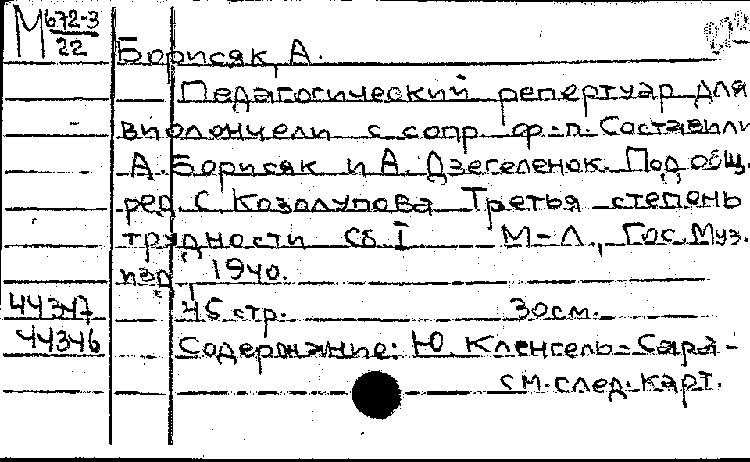 М 672-3
22
Борисяк, А.
Педагогический репертуар для
виолончели с сопр. ф-п. Составили
А. Борисяк и А. Дзегеленок. Под общ.
ред. С. Козолупова Третья степень
трудности Сб. I М-Л., Гос. Муз.
изд. 1940.
44347 45 стр. 30см.
44346 Содержание: Ю. Кленгель-Сара-
см. след. карт.